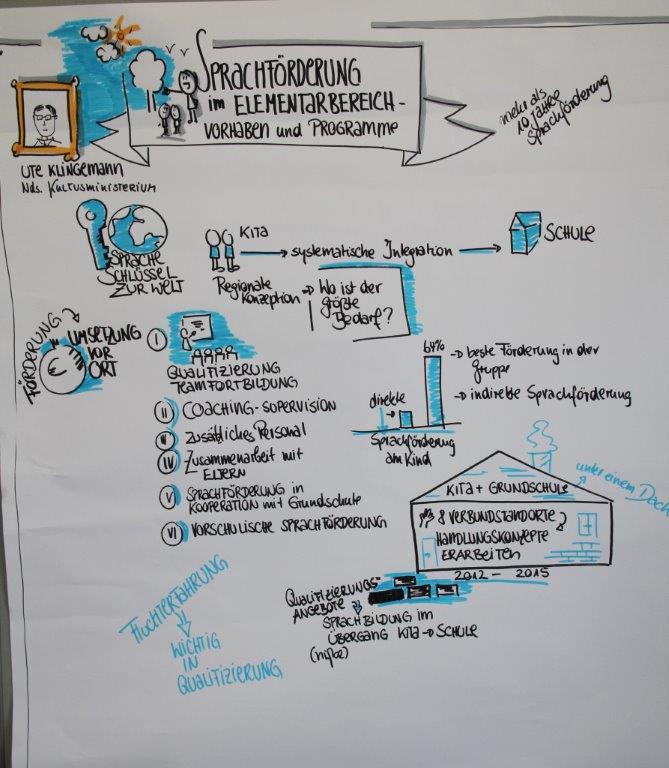 SPRACHFÖRDERUNG
im ELEMENTARBEREICH -
VORHABEN und PROGRAMME
mehr als
10 Jahre
Sprachförderung
UTE KLINGEMANN
Nds. KULTUSMINISTERIUM
SPRACHE
SCHLÜSSEL
ZUR WELT
KITA
systematische Integration
SCHULE
Regionale
Konzeption
Wo ist der
größte
Bedarf?
FÖRDERUNG
UMSETZUNG
VOR
ORT
€
I
QUALIFIZIERUNG
TEAMFORTBILDUNG
II
COACHING-SUPERVISION
Zusätzliches Personal
IV
Zusammenarbeit mit
ELTERN
V
SPRACHFÖRDERUNG in
KOOPERATION mit Grundschule
VI
VORSCHULISCHE SPRACHFÖRDERUNG
64%
beste Förderung in der
Gruppe
indirekte Sprachförderung
direkte
Sprachförderung
am Kind
unter einem Dach
KITA + GRUNDSCHULE
8 VERBUNDSTANDORTE
HANDLUNGSKONZEPTE
ERARBEITEN
2012 - 2015
QUALIFIZIERUNGS-
ANGEBOTE
SPRACHBILDUNG IM
ÜBERGANG KITA → SCHULE
(nifbe)
FLUCHTERFAHRUNG
WICHTIG
IN
QUALIFIZIERUNG